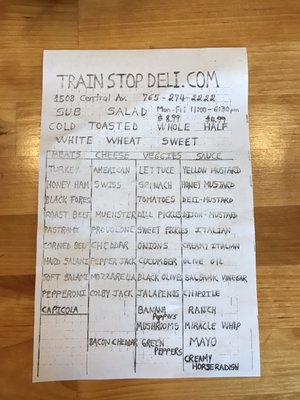 TRAIN STOP DELI.COM
1508 Central Av. 765-274-2222
SUB SALAD Mon-Fri 11:00-6:30pm
$8.99 $4.99
COLD TOASTED WHOLE HALF
WHITE WHEAT SWEET
MEATS CHEESE VEGGIES SAUCE
TURKEY AMERICAN LETTUCE YELLOW MUSTARD
HONEY HAM SWISS SPINACH HONEY MUSTARD
BLACK FOREST TOMATOES DELI-MUSTARD
ROAST BEEF MUENSTER DILL PICKLES DIJON-MUSTARD
PASTRAMI PROVOLONE SWEET PICKLES ITALIAN
CORNED BEEF CHEDDAR ONIONS CREAMY ITALIAN
HARD SALAMI PEPPER JACK CUCUMBER OLIVE OIL
SOFT SALAMI MOZZARELLA BLACK OLIVES BALSAMIC VINEGAR
PEPPERONI COLBY JACK JALAPENOS CHIPOTLE
CAPICOLA BANANA PEPPERS RANCH
MUSHROOMS MIRACLE WHIP
BACON CHEDDAR GREEN PEPPERS MAYO
CREAMY
HORSERADISH